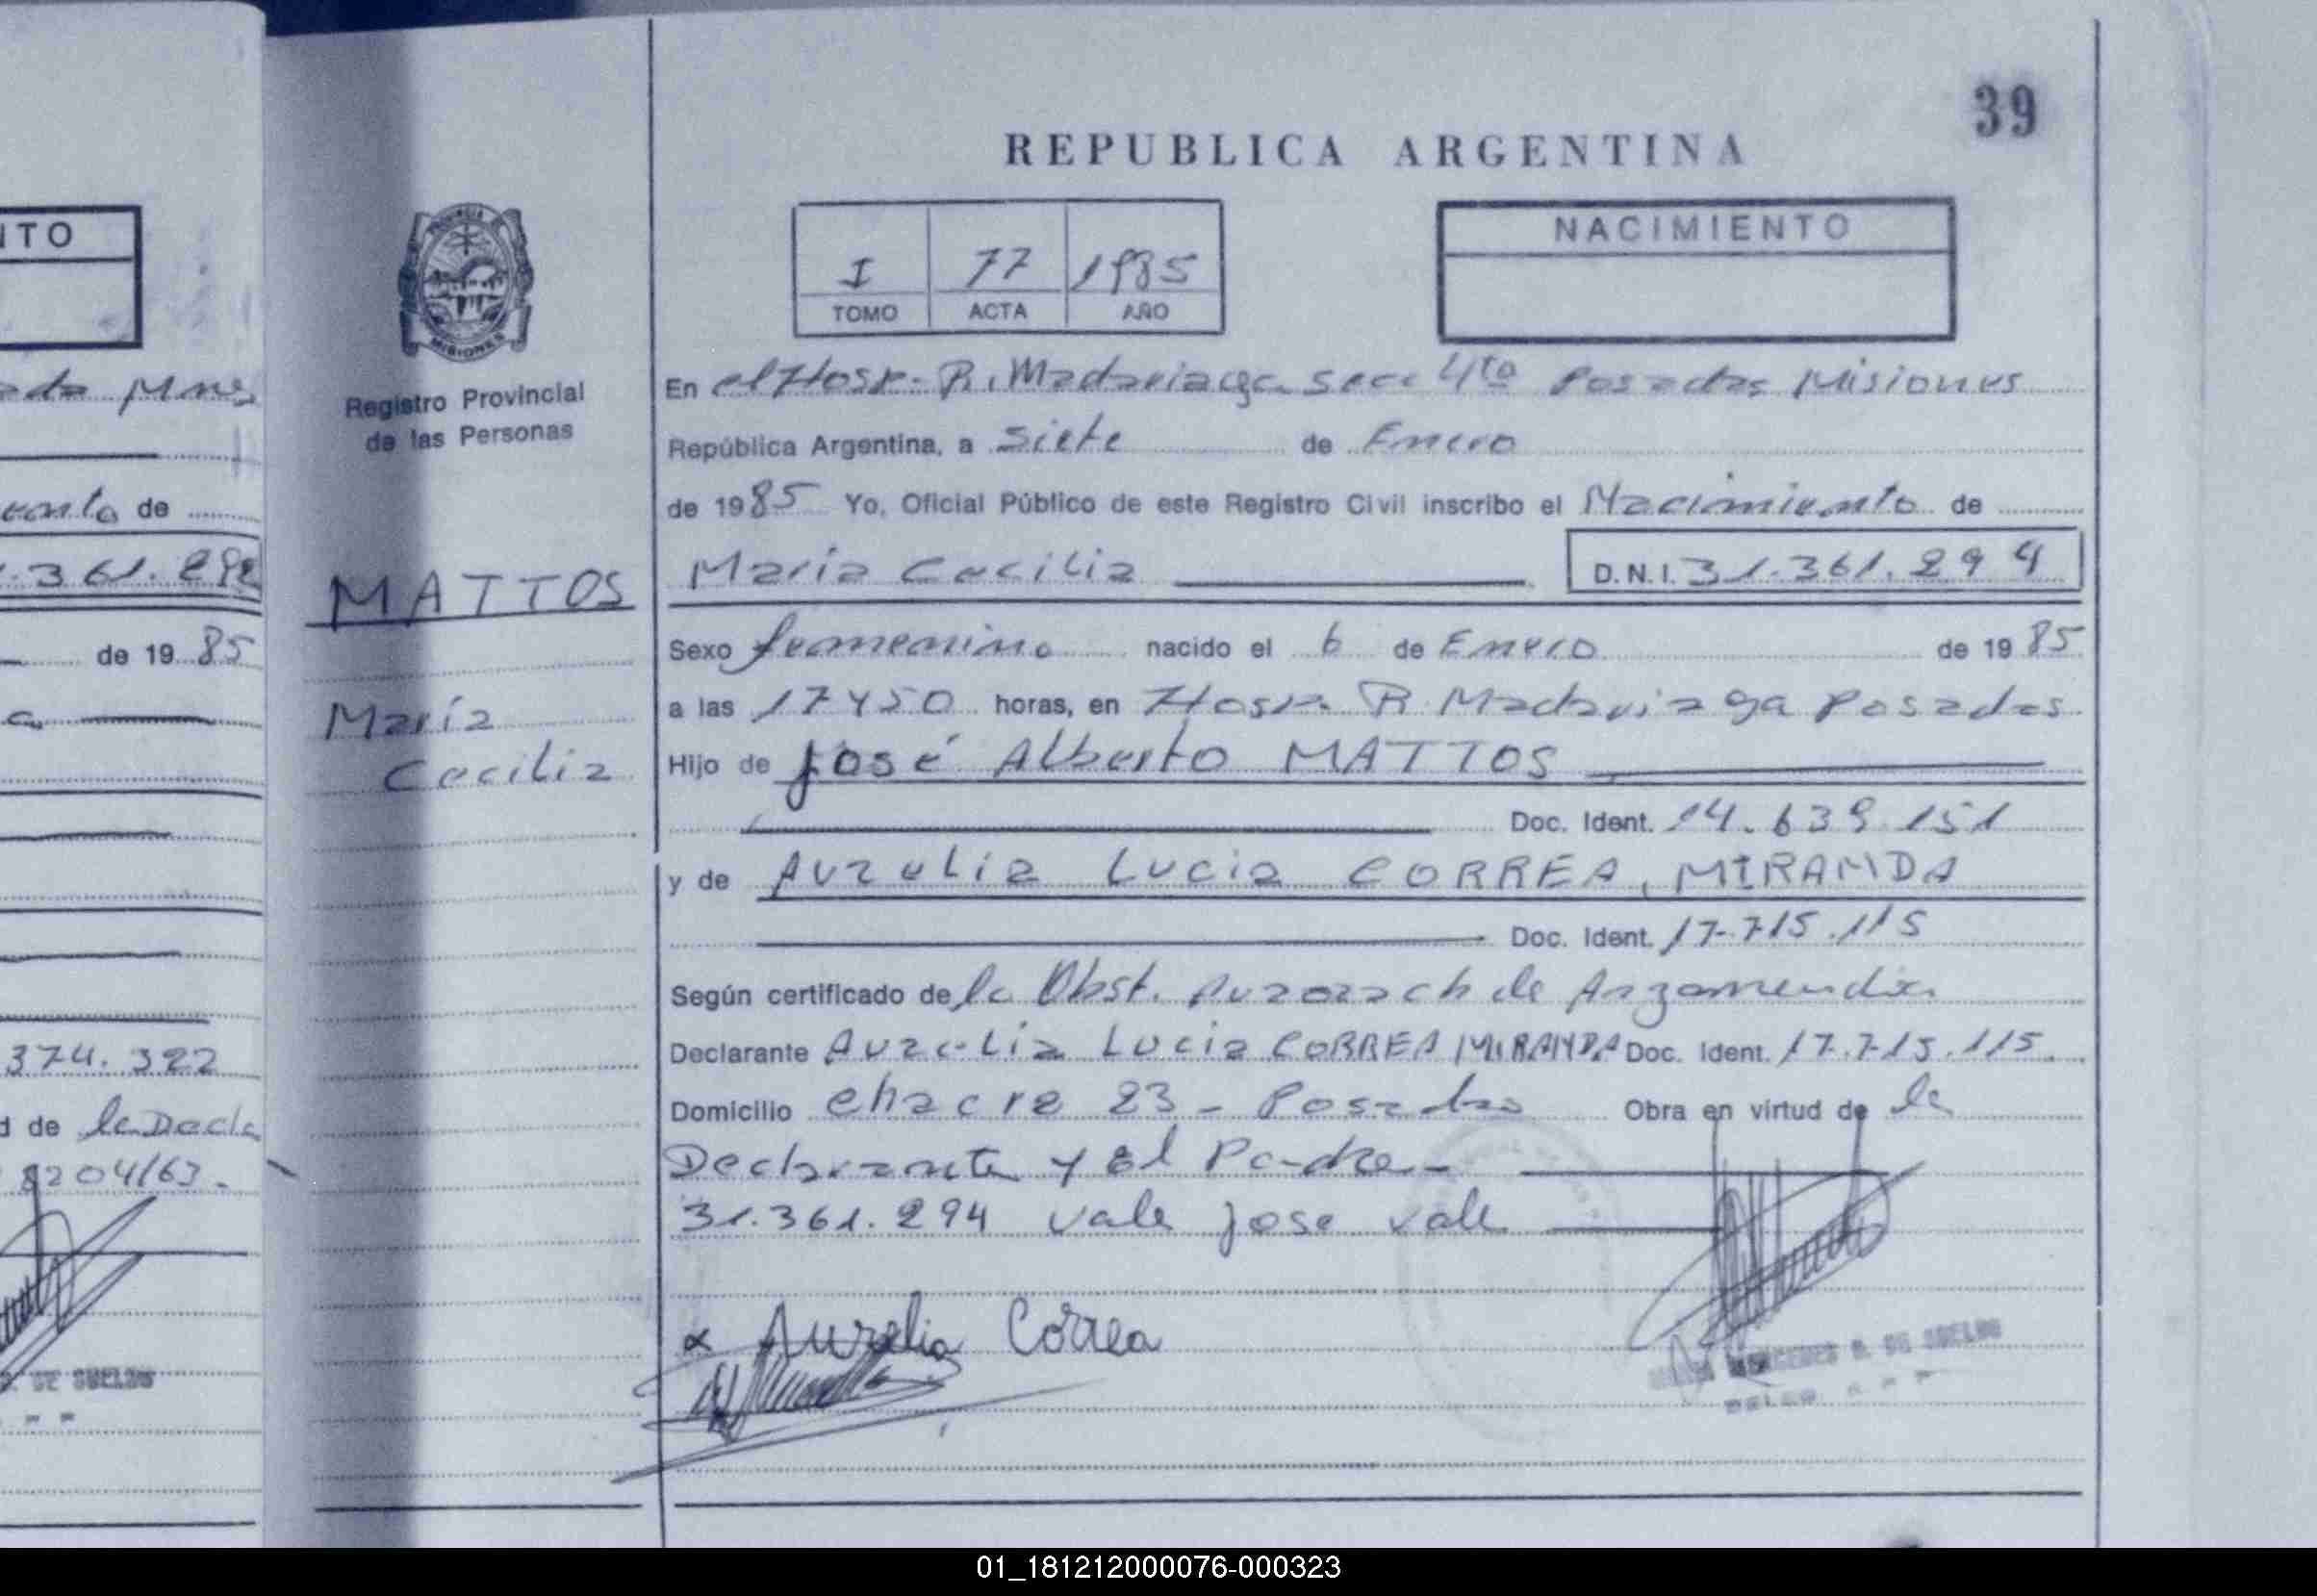 39
REPUBLICA ARGENTINA
NTO
I 77 1985
TOMO ACTA AÑO
NACIMIENTO
PROVINCIA DE
MISIONES
Registro Provincial
de las Personas
MATTOS
María
Cecilia
En el Hosp. R. Madariaga secc 4ta Posadas Misiones
República Argentina, a siete de Enero
de 1985 Yo, Oficial Público de este Registro Civil inscribo el Nacimiento de
María Cecilia D.N.I. 31.361.294
Sexo femenino nacido el 6 de Enero de 1985
a las 17 y 50 horas, en Hosp. R. Madariaga Posadas
Hijo de José Alberto MATTOS
Doc. Ident. 14.639.151
y de Aurelia Lucia CORREA, MIRANDA
Doc. Ident. 17.715.115
Según certificado de la Obst. de Arzamendia
Declarante Aurelia Lucia CORREA MIRANDA Doc. Ident. 17.715.115.
Domicilio chacra 23 - Posadas Obra en virtud de la
Declarante y El Padre-
31.361.294 vale jose vale
Aurelia Correa
DE SUELDO
de
de 1985
374.322
d de la Decla
8204/63.
DE SUELDO
01_181212000076-000323